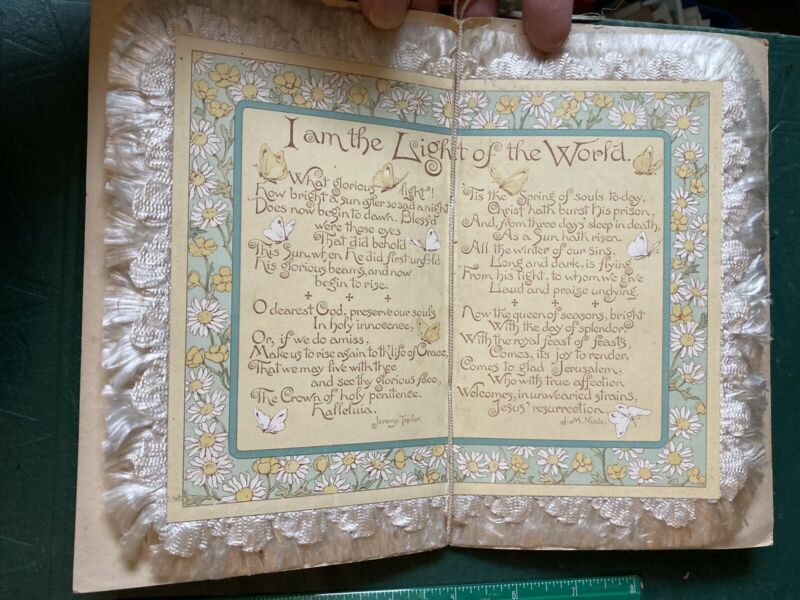 I am the Light of the World.
What glorious light!
How bright a sun after so sad a night
Does now begin to dawn. Bless'd
were those eyes
That did behold
This Sun, when He did first unfold
His glorious beams, and now
begin to rise.
O dearest God, preserve our souls
In holy innocence,
Or, if we do amiss,
Make us to rise again to th' life of Grace,
That we may live with thee
and see thy glorious face,
The Crown of holy penitence.
Halleluia.
Jeremy Taylor.
'Tis the Spring of souls to-day,
Christ hath burst his prison,
And, from three days' sleep in death,
As a Sun hath risen.
All the winter of our sins,
Long and dark, is flying
From his light, to whom we give
Laud and praise undying.
Now the queen of seasons, bright
With the day of splendor,
With the royal feast of feasts,
Comes, its joy to render.
Comes to glad Jerusalem,
Who with true affection
Welcomes, in unwearied strains,
Jesus' resurrection.
J. M. Neale.